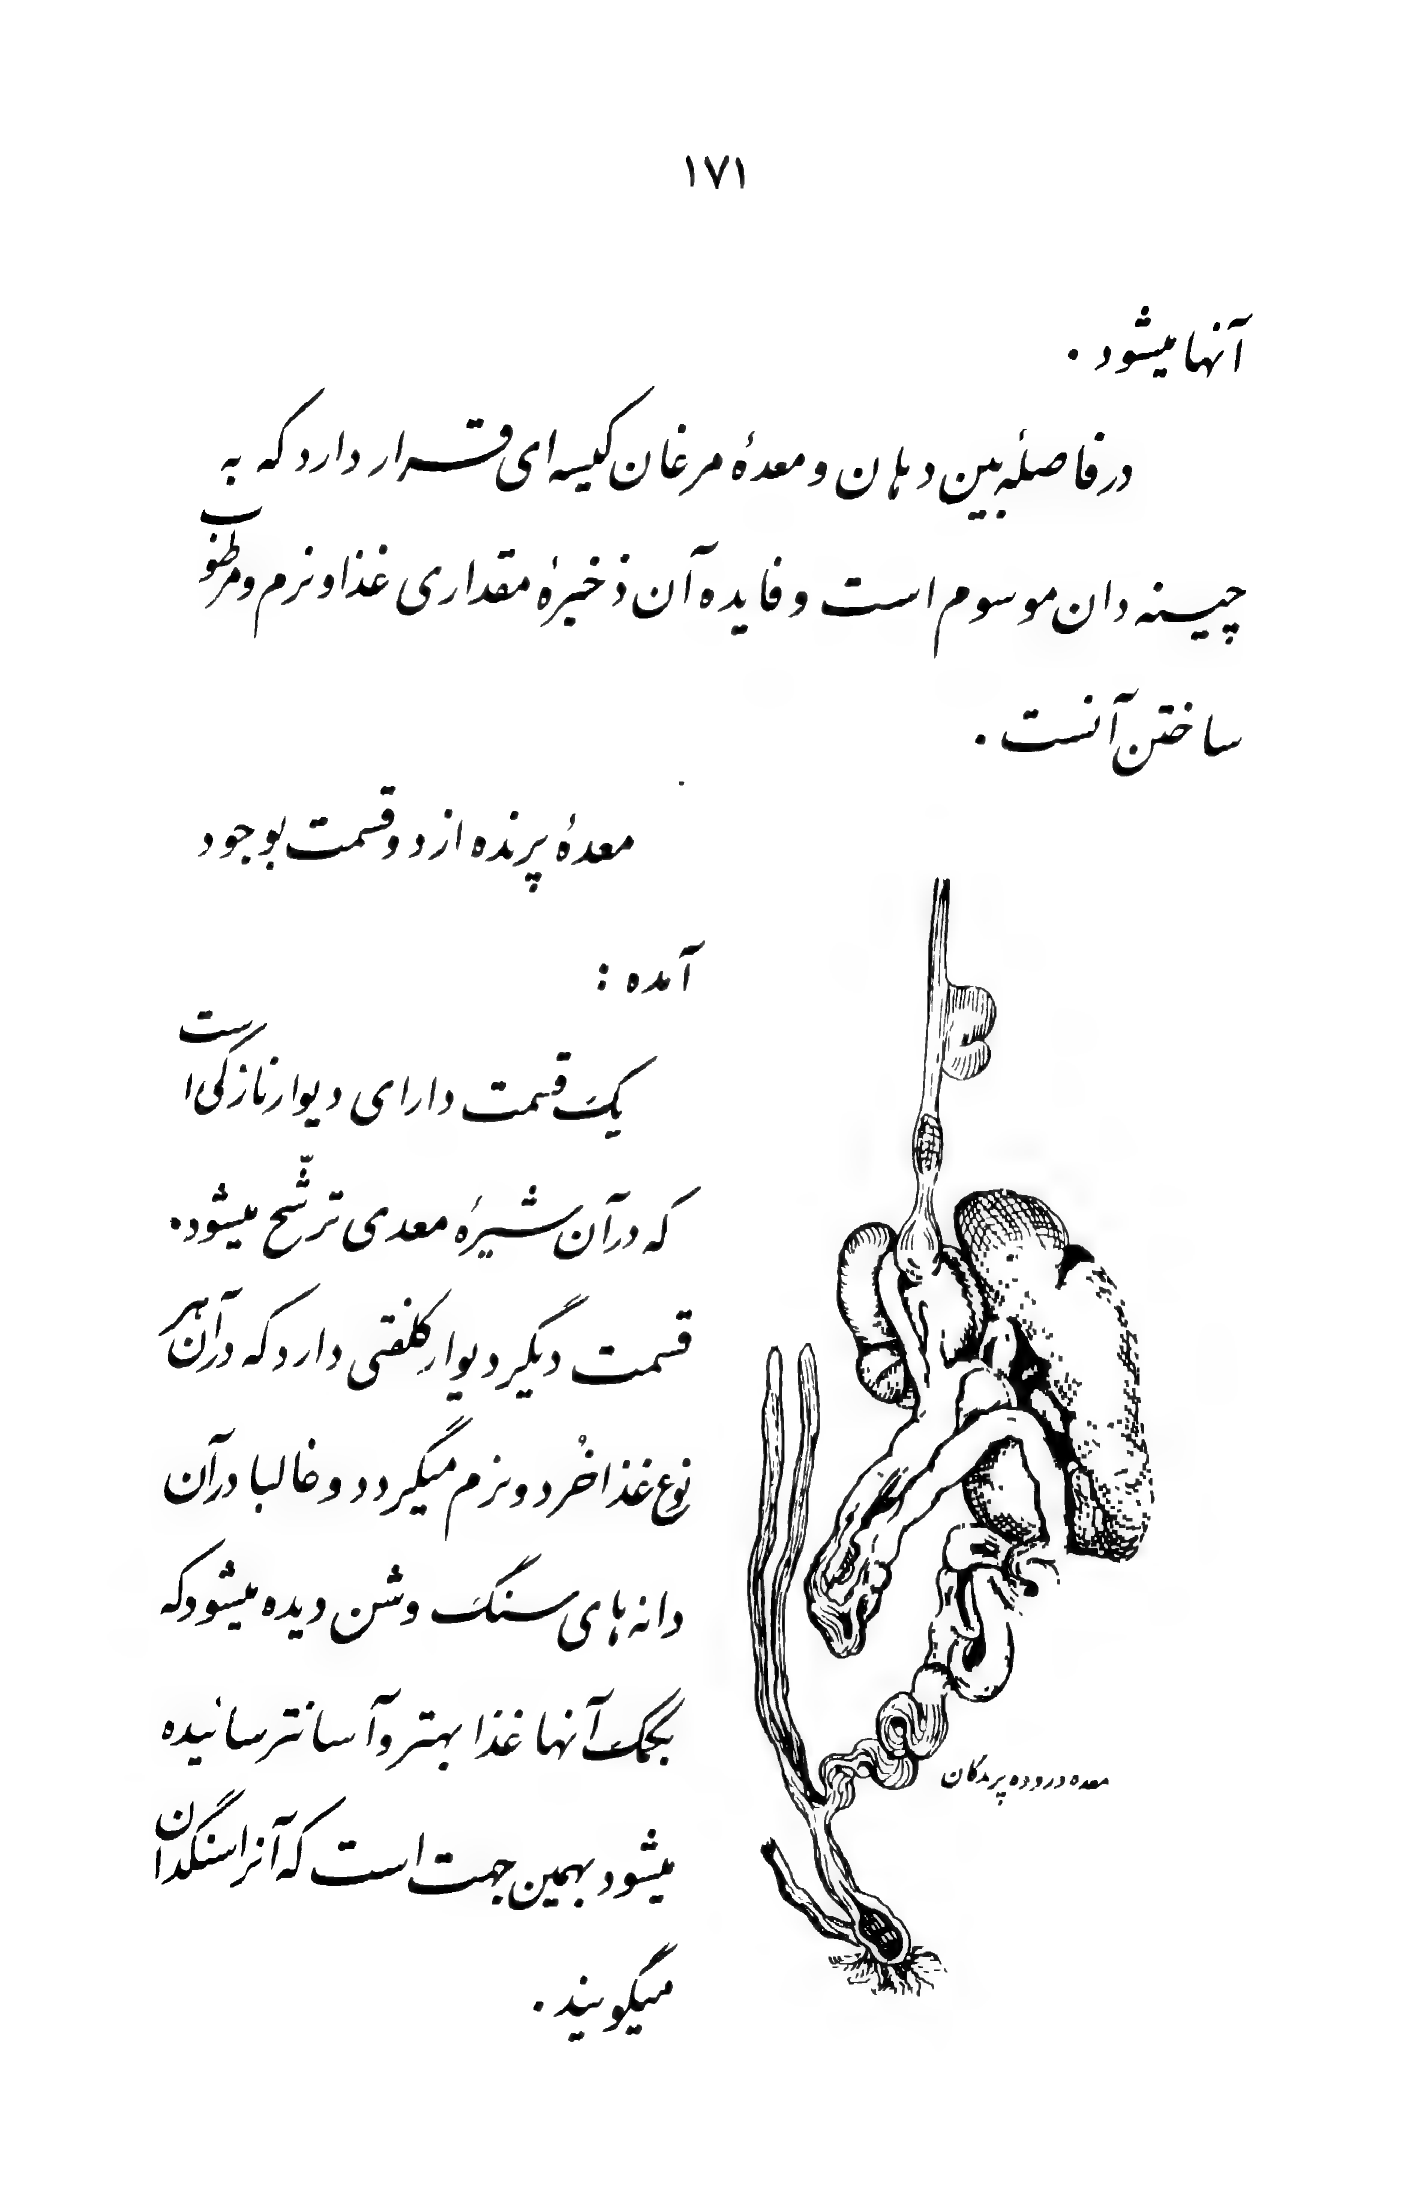 ۱۷۱
آنها میشود .
در فاصلهٔ بین دهان و معدهٔ مرغان کیسه ای قرار دارد که به
چینه دان موسوم است و فایده آن ذخیرهٔ مقداری غذا و نرم و مرطوب
ساختن آنست .
معدهٔ پرنده از دو قسمت بوجود
آمده :
یک قسمت دارای دیوار نازکی است
که در آن شیرهٔ معدی ترشّح میشود.
قسمت دیگر دیوار کلفتی دارد که در آن هر
نوع غذا خُرد و نرم میگردد و غالبا در آن
دانه های سنگ و شن دیده میشود که
بکمک آنها غذا بهتر و آسانتر سائیده
میشود بهمین جهت است که آنرا سنگدان
میگویند .
معده و روده پرندگان